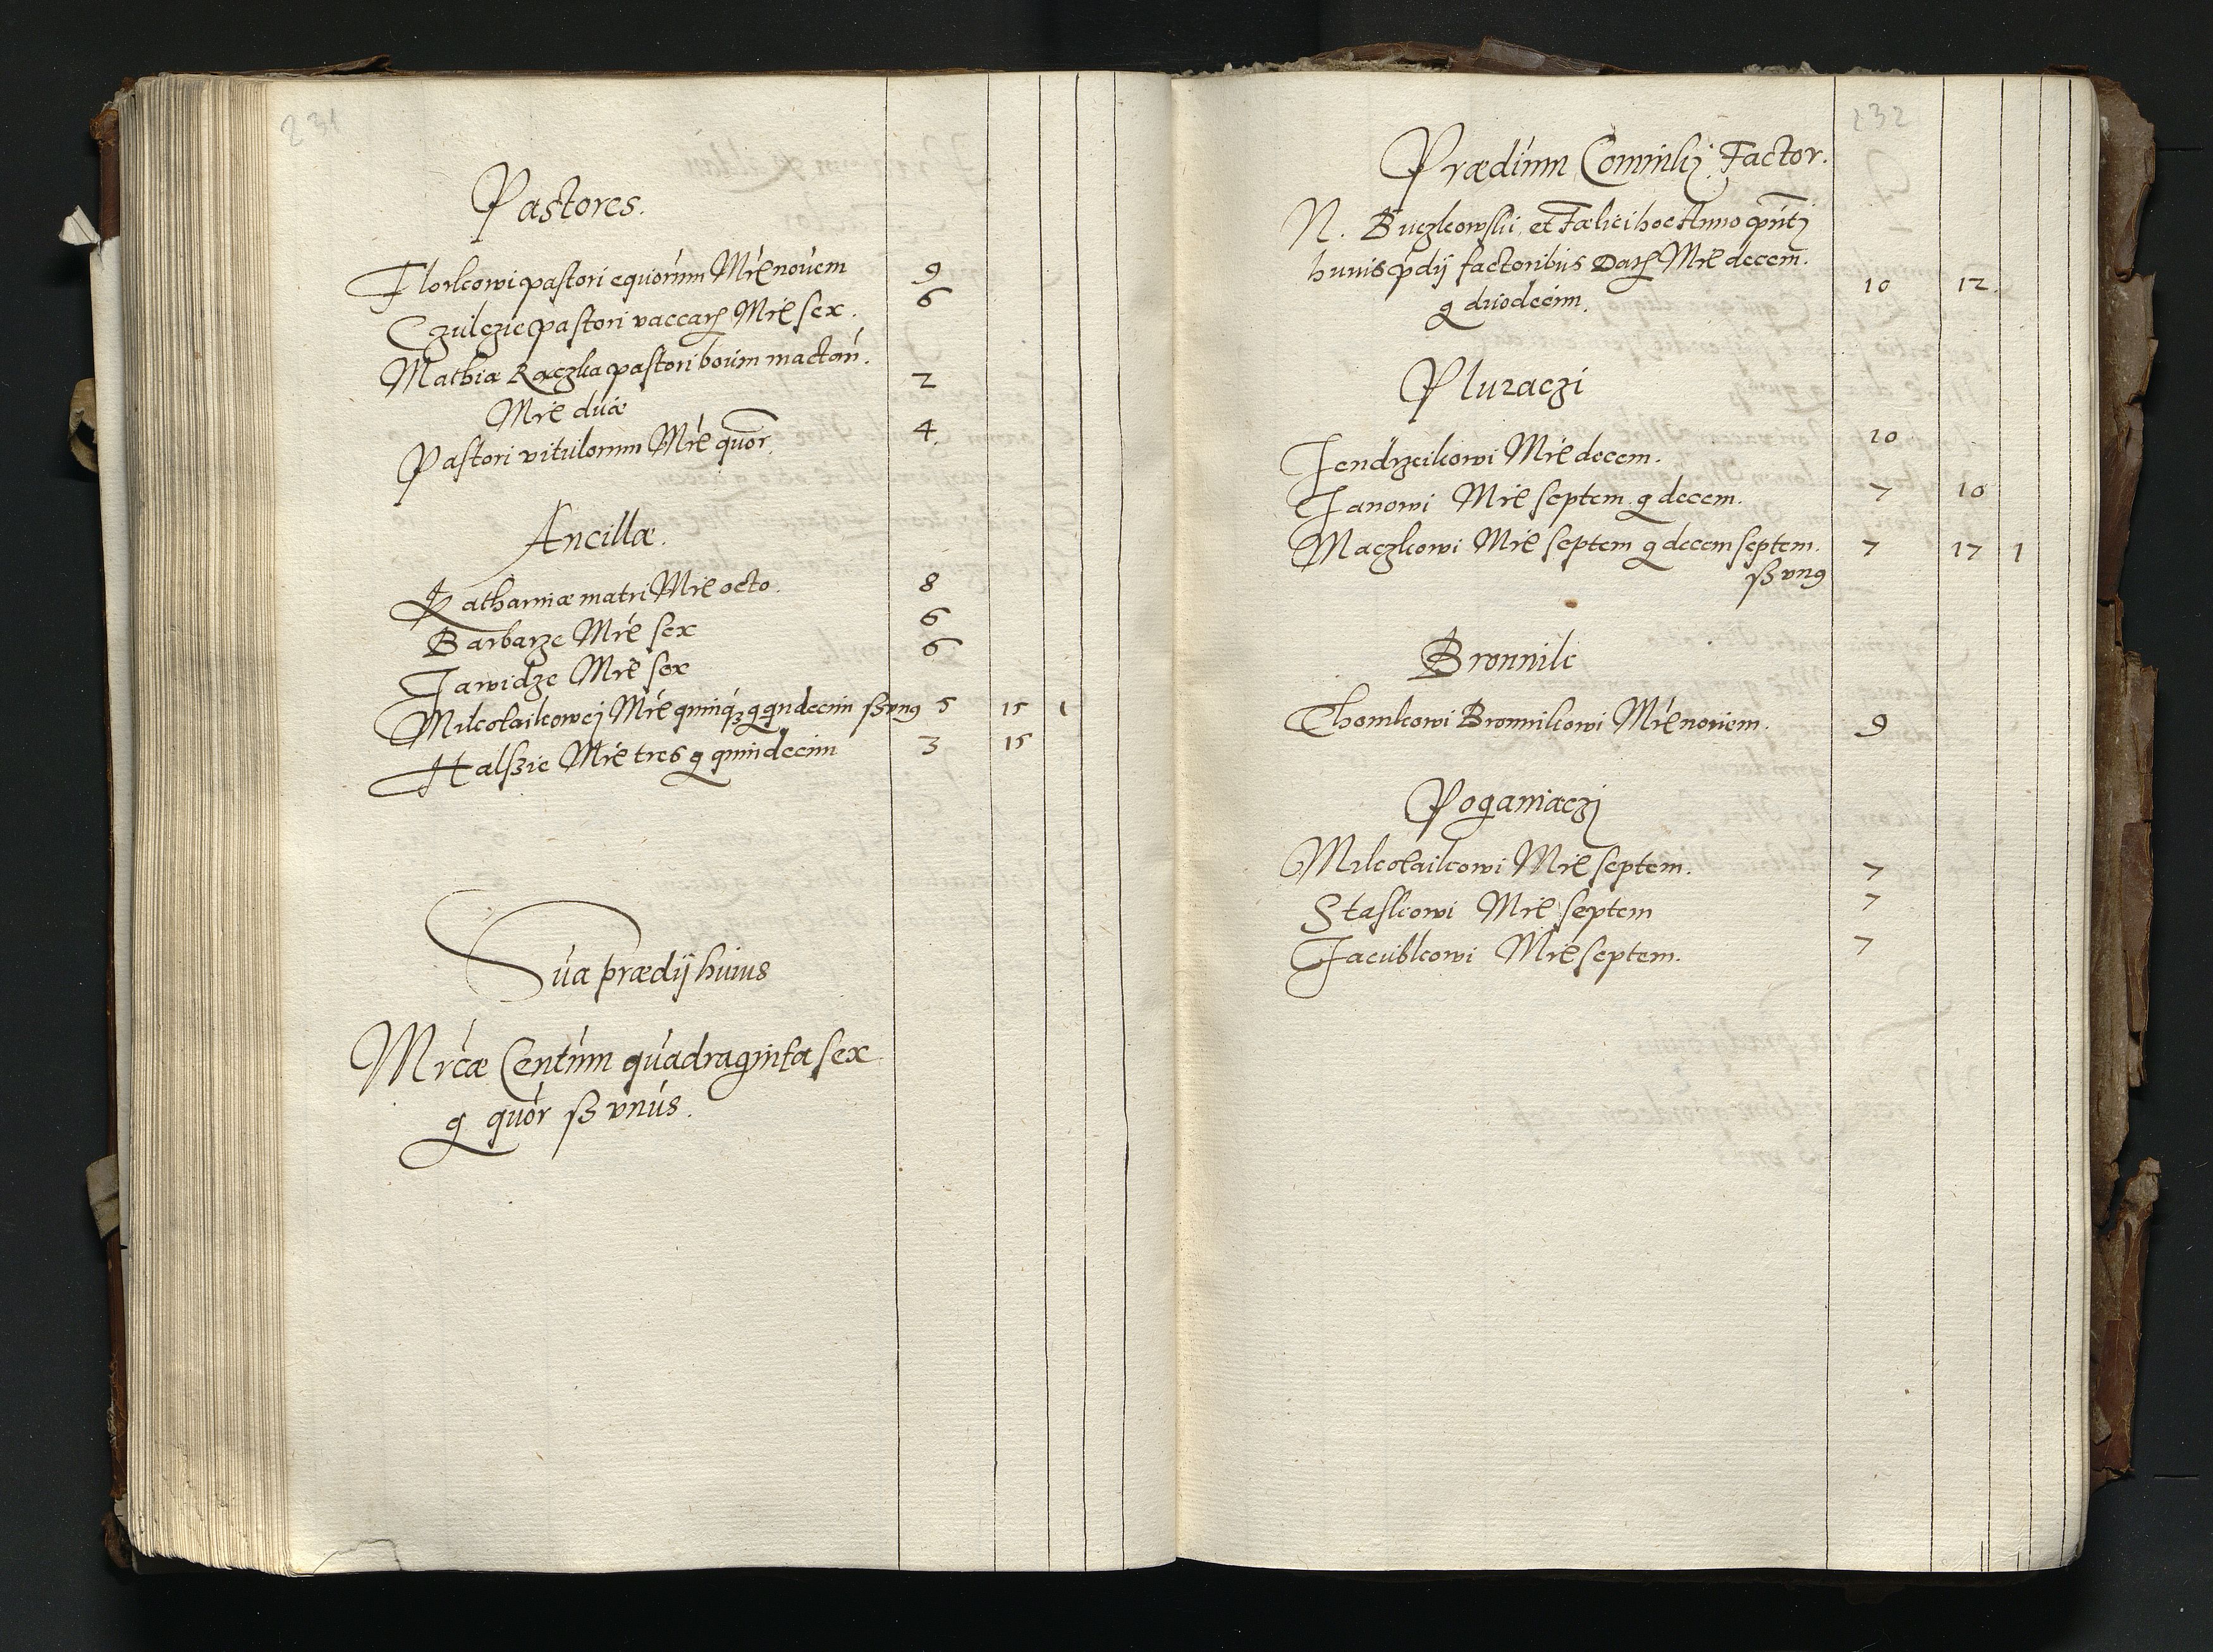 231
Pastores.
Florkowi pastori equorum Mrč novem 9
Czulczie pastori vaccarꝫ Mrč sex. 6
Mathiæ Raczka pastori boum mactan̄.
Mrč duæ 2
Pastori vitulorum Mrč quōr. 4.
Ancillæ.
Katharinæ matri Mrč octo. 8
Barbarze Mrč sex 6
Jawidze Mrč sex 6
Mikołaikowej Mrč quinqꝫ g qndecim ſʒ vnꝰ 5 15 1
Halſzie Mrč tres g quindecim 3 15
Sūa prædij huius
Mrcæ Centum quadraginta sex
g quōr ſʒ vnus.
232
Prædium Comml̄j. Factor.
N. Buczkowski, et Fælici hoc Anno p̄ntj
huius p̄dij factoribus Datꝫ Mrč decem.
g duodecim. 10 12.
Pluzaczi
Jendrzeikowi Mrč decem. 10
Janowi Mrč septem g decem. 7 10
Maczkowi Mrč septem g decem septem. 7 17 1
ſʒ vnꝰ
Bronnik
Thomkowi Bronnikowi Mrč novem. 9
Poganiaczj
Mikołaikowi Mrč septem. 7
Staskowi Mrč septem 7
Jacubkowi Mrč septem. 7